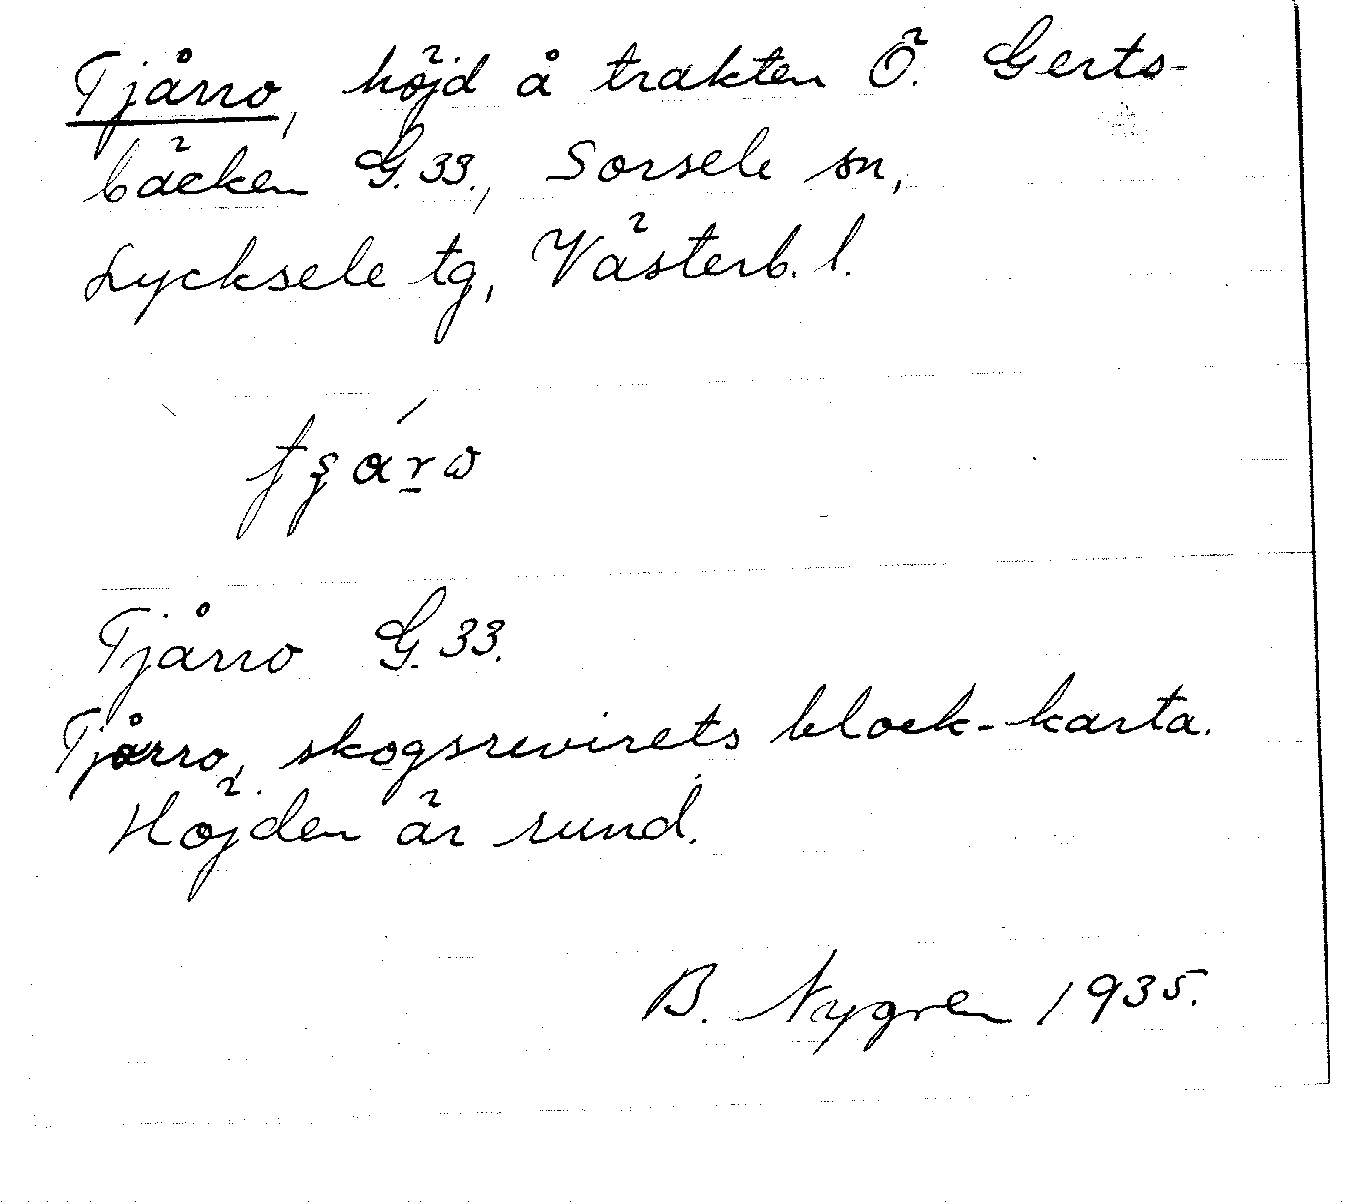 Tjårro, höjd å trakten Ö. Gerts-
bäcken G.33., Sorsele sn,
Lycksele tg, Västerb. l.
Tjårro G.33.
Tjårro, skogsrevirets block-karta.
Höjden är rund.
B. Nygren 1935.